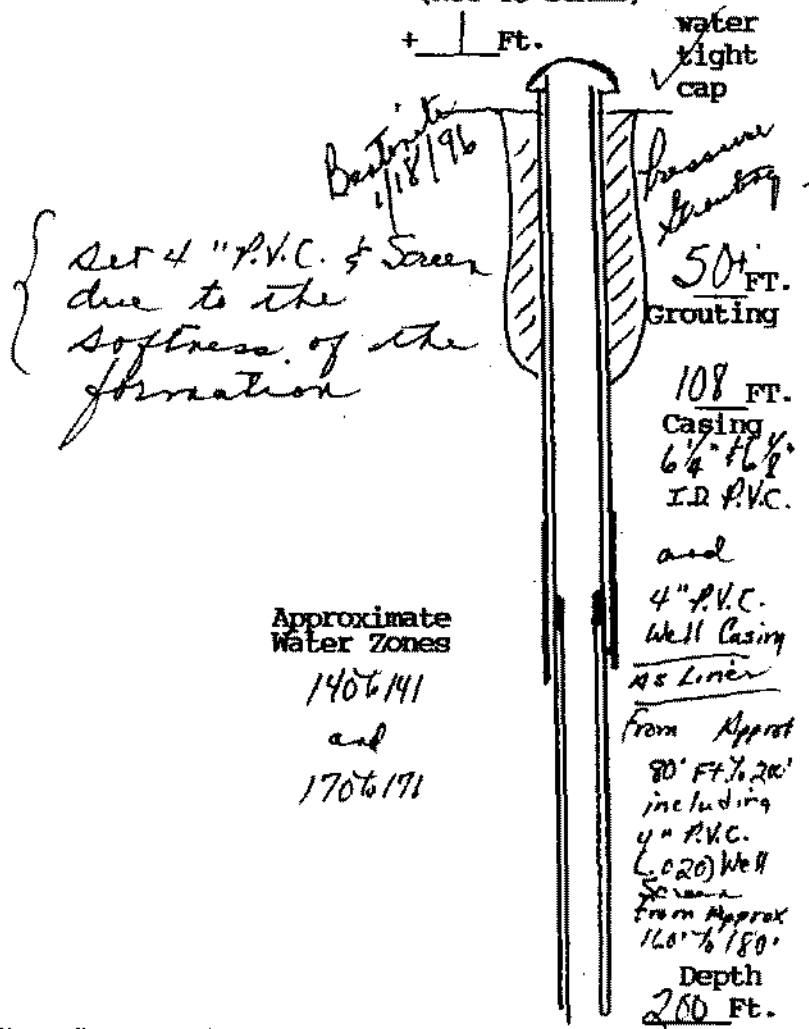 + 1 Ft.
water
tight
cap
Bentonite
1/18/96
Pressure
Grouting
set 4" P.V.C. & Screen
due to the
softness of the
formation
50+' FT.
Grouting
108 FT.
Casing
6 1/4" & 6 1/8"
I.D. P.V.C.
and
4" P.V.C.
Well Casing
As Liner
From Approx
80' Ft to 200'
including
4" P.V.C.
(.020) Well
Screen
From Approx
160' to 180'
Approximate
Water Zones
140 to 141
and
170 to 171
Depth
200 Ft.